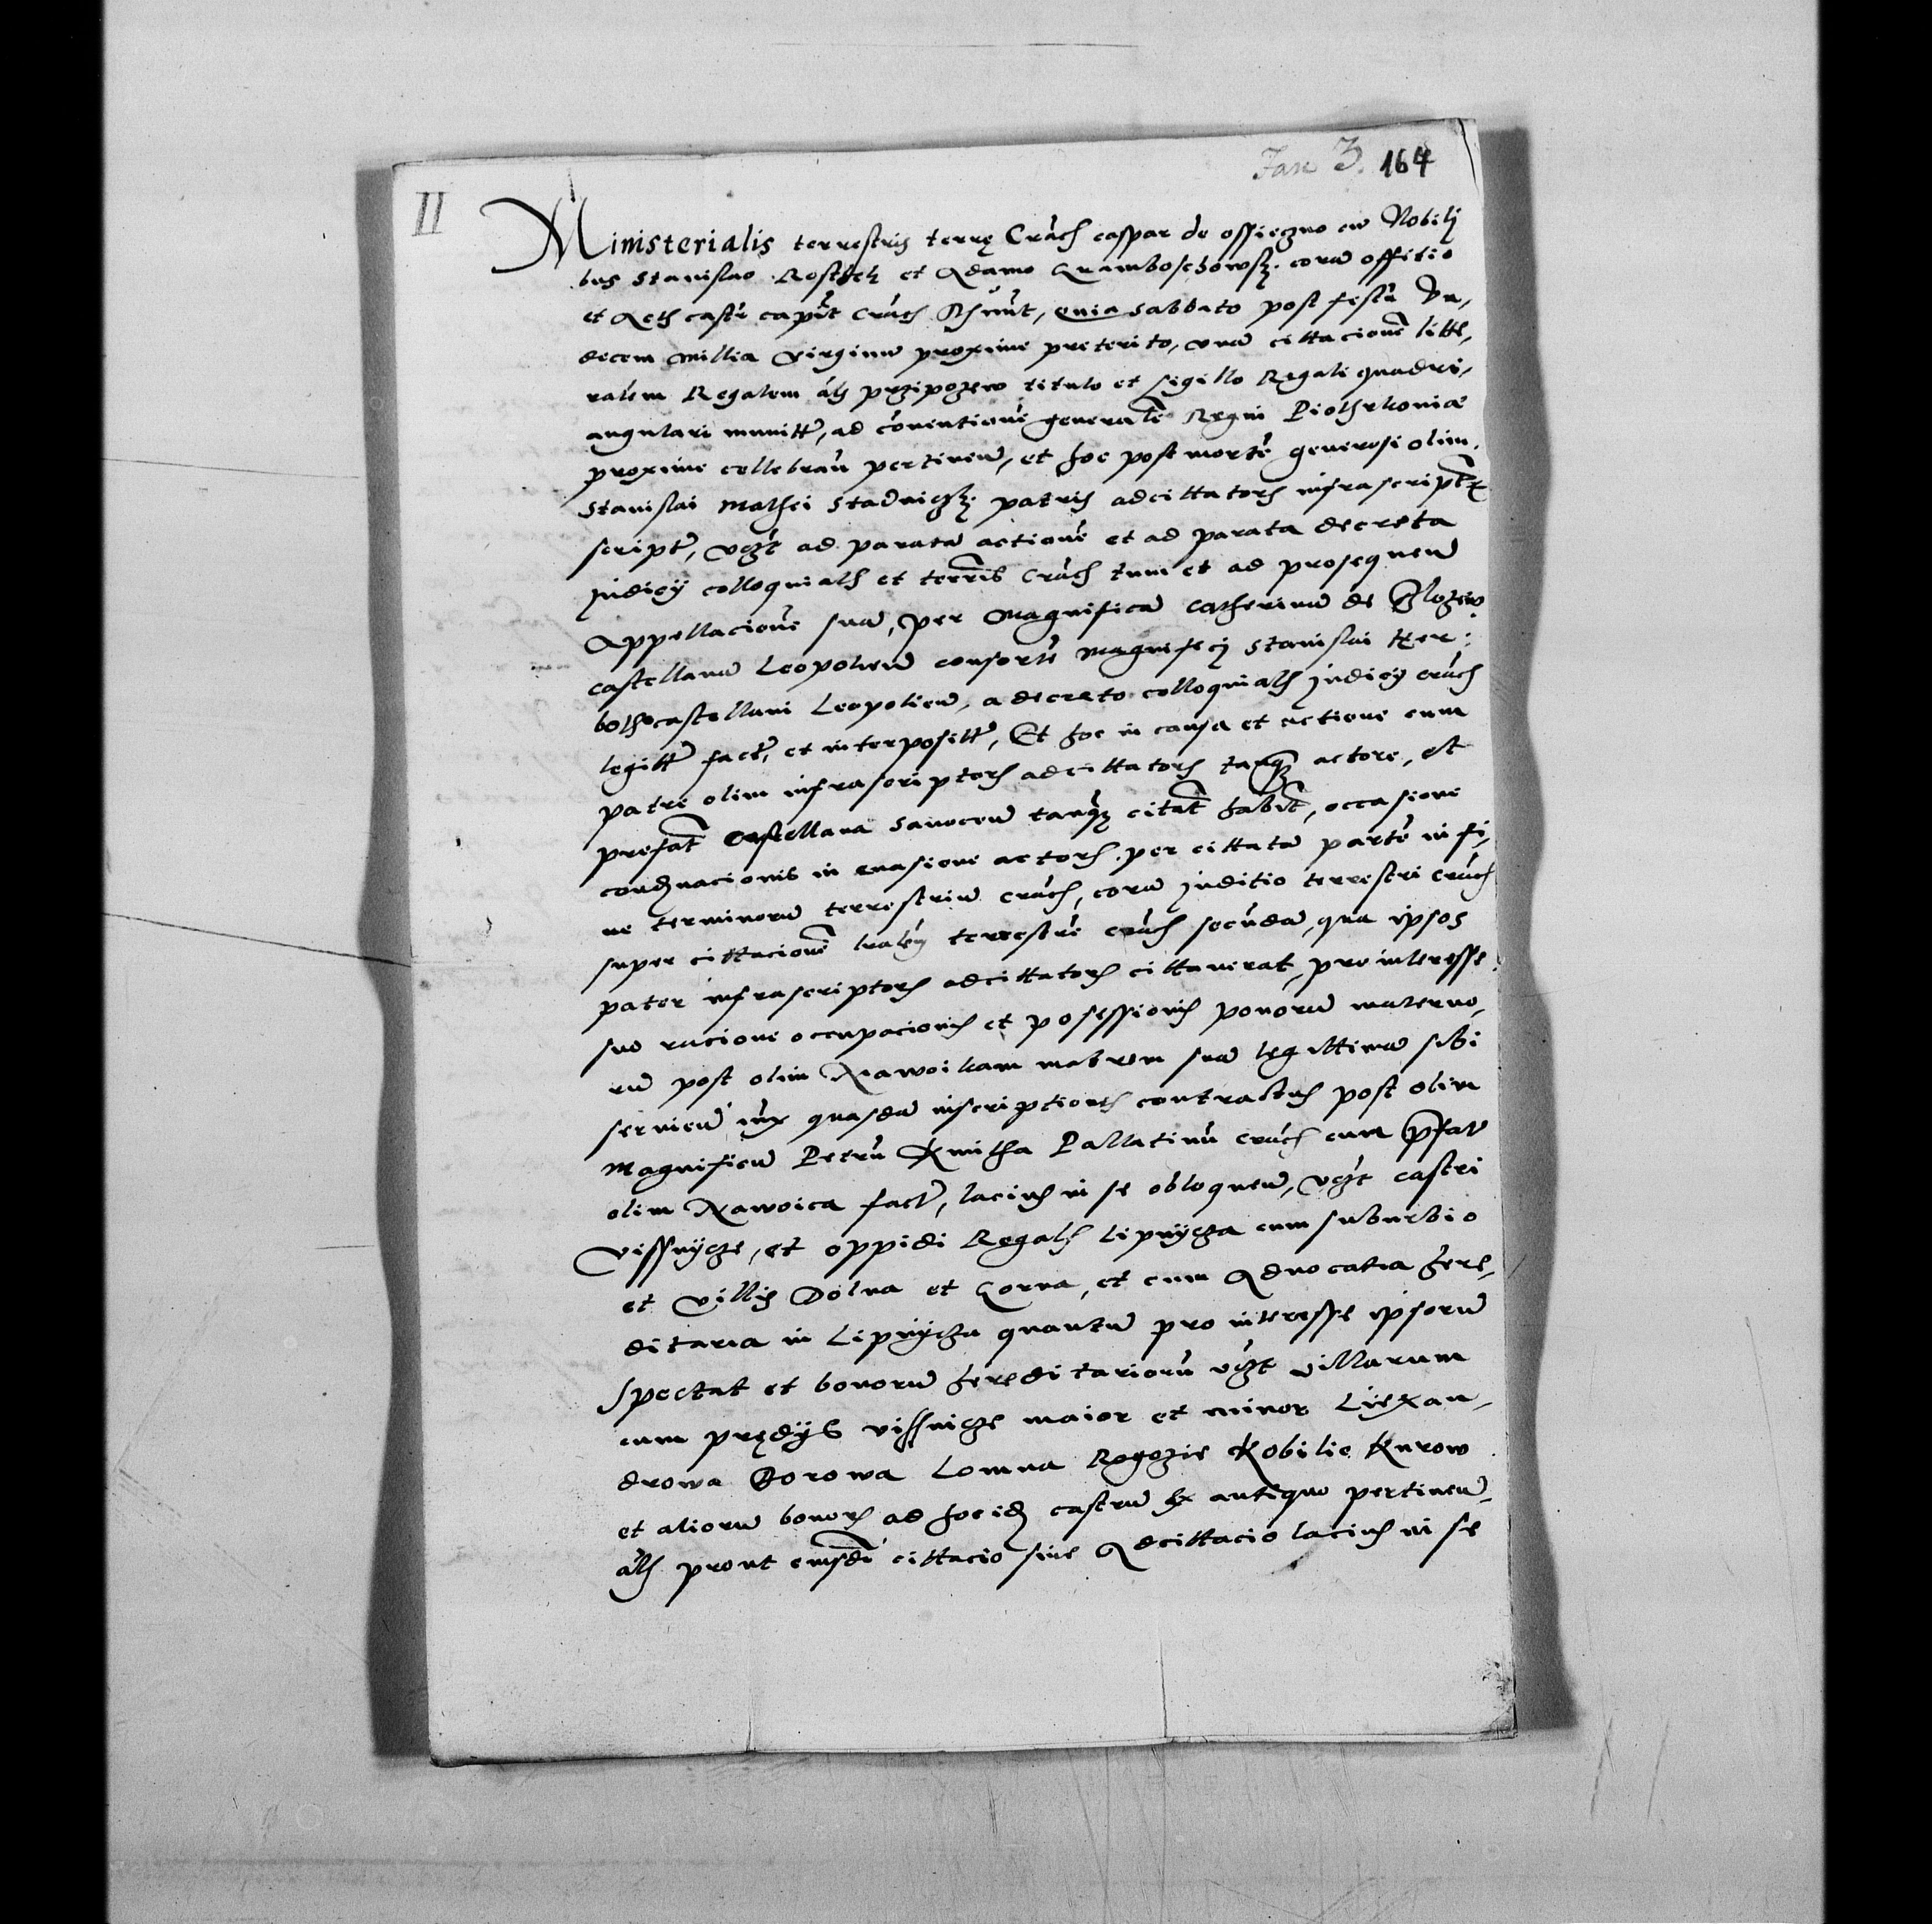 Jan 3. 164
II
Ministerialis terrestris terrę Crach caspar de ossieczno cu Nobili
bus Stanislao Rosthek et Adamo Gramboschowsky. coram offitio
et Acth castr capit Crach, quia sabbato post festu Un,
decem millia virginu proxime preterito, una cittacione litte,
ralem Regalem als przipozew titulo et sigillo Regali quadri,
angulari munitt, ad coventione generale Regni Piothrkoniæ
proxime cellebran pertinen, et hoc post morte generosi olim
Stanislai Mathei Stadniczky. patris adcittatorh infrascript
script, vczt ad parata actione et ad parata decreta
Judicy colloquialh et terris Crach tum et ad prosequen
Appellacione sua, per Magnifica Catherina de
castellana Leopolien consorte Magnificj Stanislai Her:
botho castellani Leopolien, a decreto colloquialh Judicy crach
legitt fact, et interpositt, Et hoc in causa et actione cum
patre olim infrascriptorh adcittatorh tanqz actore, et
prefat Castellana sanocen tanqz citat habit, occasione
condnacionis in evasione actorh per cittata parte in fi,
ne terminoru terrestriu crach, cora Juditio terrestri crach
super cittacione lralem terrestre crach secuda, qua ipsos
pater infrascriptorh adcittatorh cittaverat, pro interesse
suo racione occupacionis et possessionis ponoru materno,
ru post olim Nawoikam matrem sua legittima sibi
servien iux quasda inscriptiones contractus post olim
Magnificu Petru Kmitha Pallatinu crach cum pfat
olim Nawoica fact, lacius in se obloquen, vczt castri
Vissnycze, et oppidi Regalh Lipnycza cum suburbio
et Villis Dolna et Gorna, et cum Advocatia here,
ditaria in Lipnycza quantu pro interesse ipsoru
spectat et bonoru hereditarioru vczt villarum
cum prędys vissnicze maior et minor Liexan,
drowa Borowa Lomna Rogozie Kobilie Kurow
et alioru bonorh ad hoc id castru ex antiquo pertinen,
als prout eiusde cittacio sive Adcittacio lacius in se